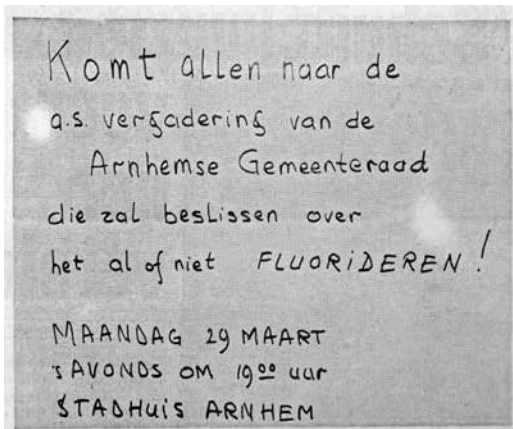 Komt allen naar de
a.s. vergadering van de
Arnhemse Gemeenteraad
die zal beslissen over
het al of niet FLUORiDEREN!
MAANDAG 29 MAART
's AVONDS OM 19⁰⁰ uur
STADHuis ARNHEM